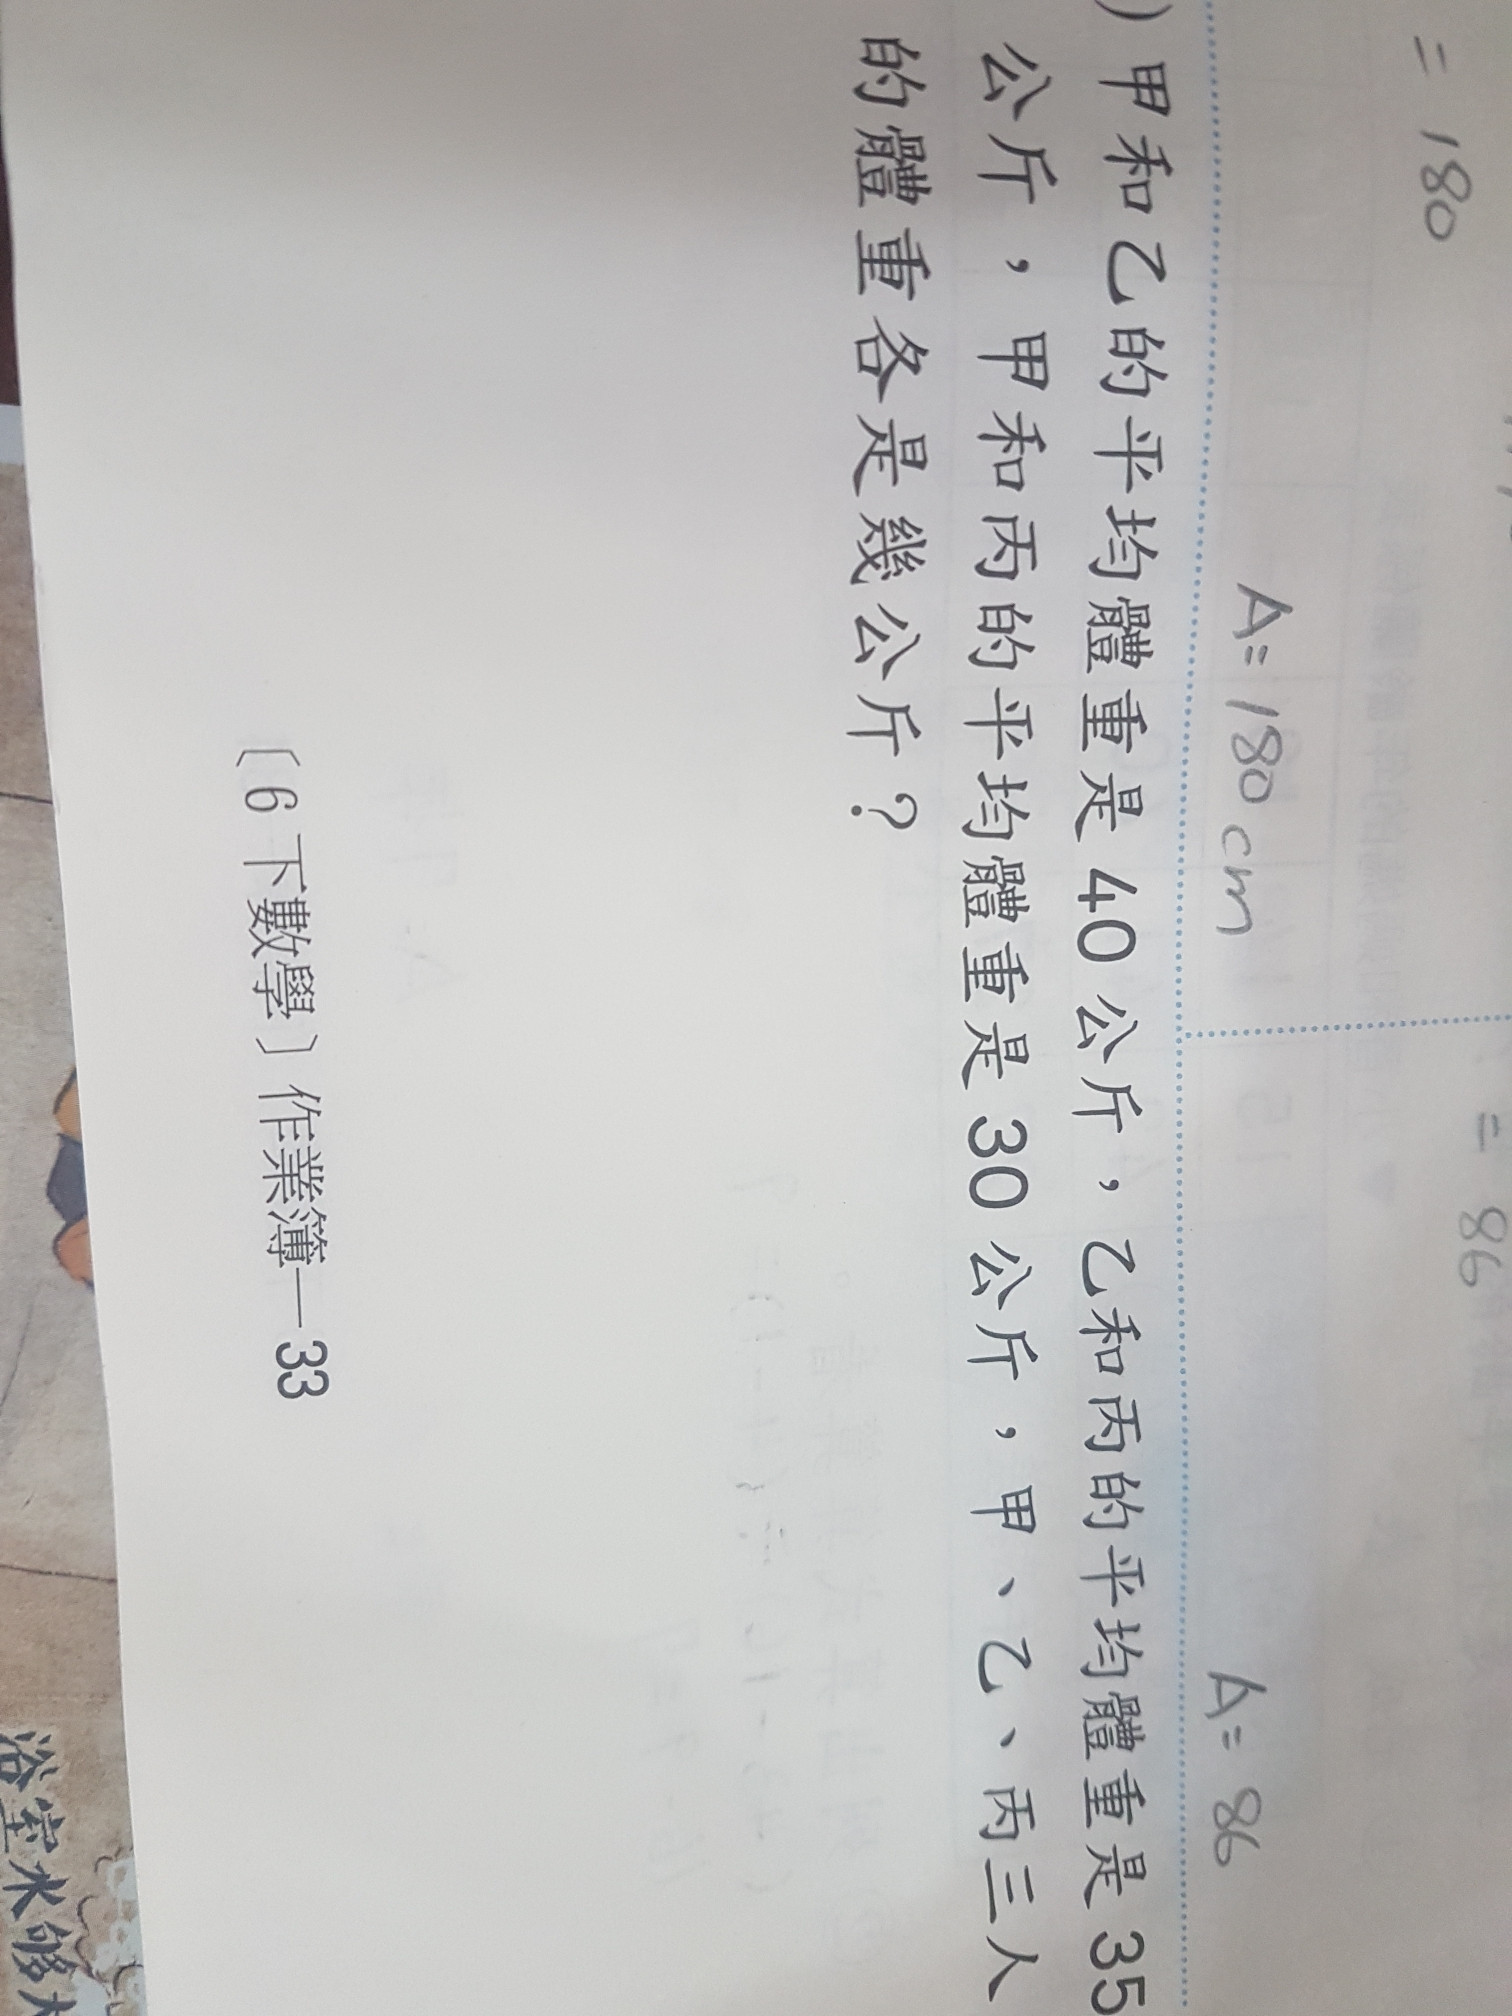 = 180
= 86
A = 180 cm
A = 86
) 甲和乙的平均體重是 40 公斤，乙和丙的平均體重是 35
公斤，甲和丙的平均體重是 30 公斤，甲、乙、丙三人
的體重各是幾公斤？
〔6 下數學〕作業簿—33
浴室水够大